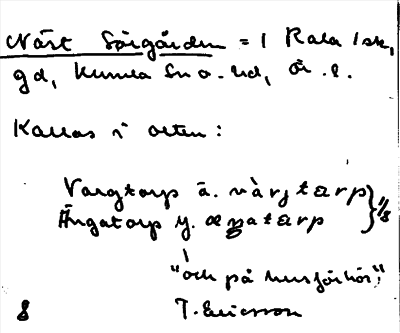 Norrt Sörgården = 1 Rala 1 sk,
gd, Kumla sn o. hd, Ör. l.
Kallas i orten:
Vargtorp ä. vàrjtarp
Ängatorp y. æŋatarp } 1/8
"och på husförhör."
8 T. Ericsson